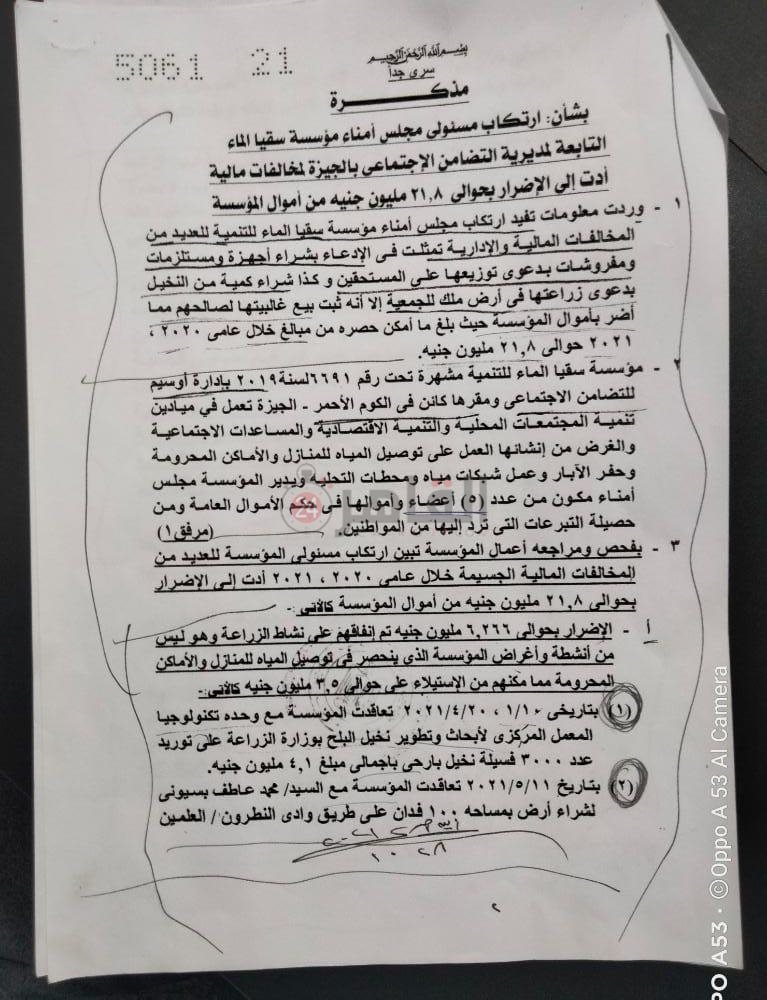 5061 21
بسم الله الرحمن الرحيم
سرى جداً
مذكرة
بشأن: ارتكاب مسئولى مجلس أمناء مؤسسة سقيا الماء
التابعة لمديرية التضامن الإجتماعى بالجيزة لمخالفات مالية
أدت إلى الإضرار بحوالى ٢١,٨ مليون جنيه من أموال المؤسسة
١ - وردت معلومات تفيد ارتكاب مجلس أمناء مؤسسة سقيا الماء للتنمية للعديد من
المخالفات المالية والإدارية تمثلت فى الإدعاء بشراء أجهزة ومستلزمات
ومفروشات بدعوى توزيعها على المستحقين و كذا شراء كمية من النخيل
بدعوى زراعتها فى أرض ملك للجمعية إلا أنه ثبت بيع غالبيتها لصالحهم مما
أضر بأموال المؤسسة حيث بلغ ما أمكن حصره من مبالغ خلال عامى ٢٠٢٠ ،
٢٠٢١ حوالى ٢١,٨ مليون جنيه.
٢ - مؤسسة سقيا الماء للتنمية مشهرة تحت رقم ٦٦٩١ لسنة ٢٠١٩ بإدارة أوسيم
للتضامن الاجتماعى ومقرها كائن فى الكوم الأحمر - الجيزة تعمل في ميادين
تنمية المجتمعات المحلية والتنمية الاقتصادية والمساعدات الاجتماعية
والغرض من إنشائها العمل على توصيل المياه للمنازل والأماكن المحرومة
وحفر الآبار وعمل شبكات مياه ومحطات التحليه ويدير المؤسسة مجلس
أمناء مكون من عدد (٥) أعضاء وأموالها فى حكم الأموال العامة ومن
حصيلة التبرعات التى ترد إليها من المواطنين. (مرفق١)
٣ - بفحص ومراجعه أعمال المؤسسة تبين ارتكاب مسئولى المؤسسة للعديد من
المخالفات المالية الجسيمة خلال عامى ٢٠٢٠ ، ٢٠٢١ أدت إلى الإضرار
بحوالى ٢١,٨ مليون جنيه من أموال المؤسسة كالأتى:-
أ - الإضرار بحوالى ٦,٢٦٦ مليون جنيه تم إنفاقهم على نشاط الزراعة وهو ليس
من أنشطة وأغراض المؤسسة الذى ينحصر فى توصيل المياه للمنازل والأماكن
المحرومة مما مكنهم من الإستيلاء على حوالى ٣,٥ مليون جنيه كالأتى:-
(١) بتاريخى ١/١٠ ، ٢٠٢١/٤/٢٠ تعاقدت المؤسسة مع وحده تكنولوجيا
المعمل المركزى لأبحاث وتطوير نخيل البلح بوزارة الزراعة على توريد
عدد ٣٠٠٠ فسيلة نخيل بارحى باجمالى مبلغ ٤,١ مليون جنيه.
(٢) بتاريخ ٢٠٢١/٥/١١ تعاقدت المؤسسة مع السيد/ محمد عاطف بسيونى
لشراء أرض بمساحه ١٠٠ فدان على طريق وادى النطرون / العلمين
١٠٢٨
٢
القاهرة 24
OPPO A53 · ©Oppo A 53 AI Camera